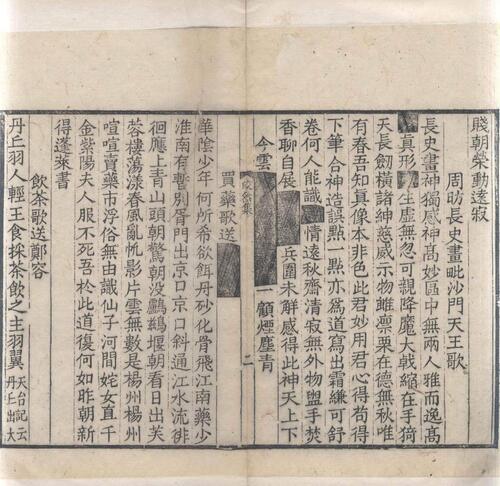 賤朝榮動逺寂
周昉長史畫毗沙門天王歌
長史畫神獨感神高妙區中無兩人雅而逸髙
真形生虛無忽可親降魔大戟縮在手猗
天長劒横諸紳慈威示物雖凛栗在德無秋唯
有春吾知真像本非色此君妙用君心得苟得
下筆合神造誤點一點亦爲道寫出霜縑可舒
卷何人能識情逺秋齋清寂無外物盟手焚
香聊自展兵圍未解感得此神天上下
今雲一顧煙塵青
集 二
買藥歌送
華陰少年何所希欲餌丹砂化骨飛江南藥少
淮南有暫別胥門出京口京口斜通江水流徘
徊應上青山頭朝驚朝没鸕鷀堰朝看日出芙
蓉樓荡漾春風亂帆影片雲無數是楊州楊州
喧喧賣藥市浮俗無由識仙子河間姹女直千
金紫陽夫人服不死吾於此道復何如昨朝新
得蓬萊書
飲茶歌送鄭容
丹丘羽人輕王食採茶飲之主羽翼
天台記云
丹丘出大